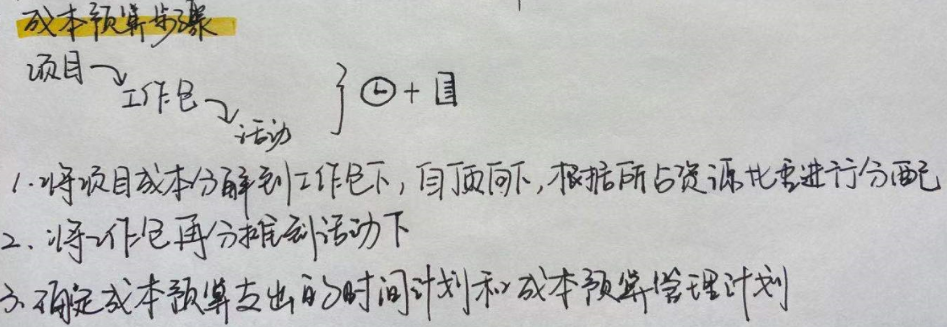 成本预算步骤
项目
工作包
活动
} +
1.将项目成本分解到工作包下,自顶向下,根据所占资源比重进行分配
2、将工作包再分摊到活动下
3.确定成本预算支出的时间计划和成本预算管理计划